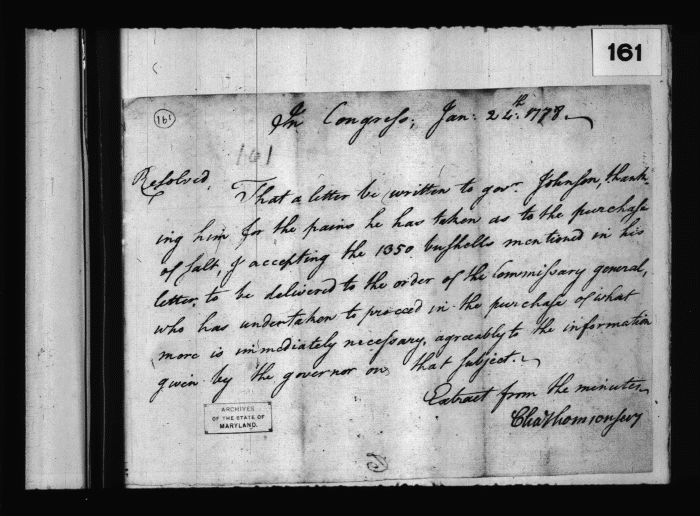 161
161
In Congress, Jan: 24th: 1778.
161
Resolved,
That a letter be written to govr. Johnson, thank-
ing him for the pains he has taken as to the purchase
of salt, & accepting the 1350 bushells mentioned in his
letter, to be delivered to the order of the Commissary general,
who has undertaken to proceed in the purchase of what
more is immediately necessary, agreeably to the information
given by the governor on that subject.
Extract from the minutes
Chas Thomson secy
ARCHIVES
OF THE STATE OF
MARYLAND.